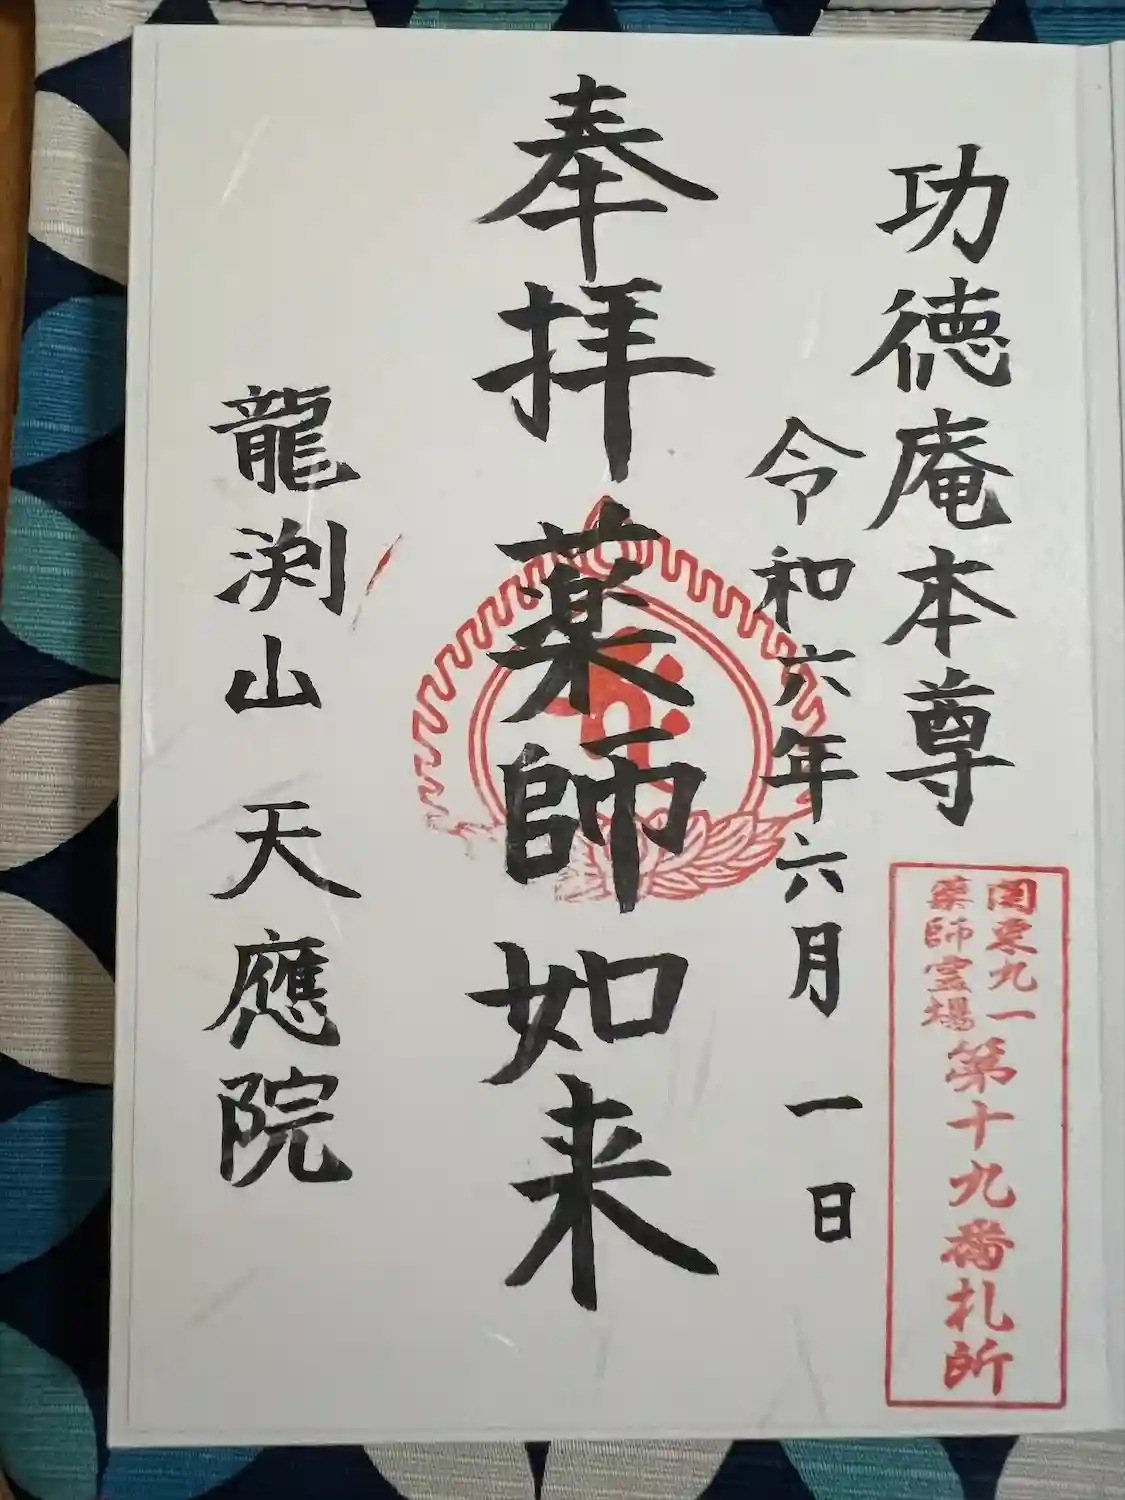 功徳庵本尊
関東九一
薬師霊場
第十九番札所
令和六年六月一日
奉拝薬師如来
龍渕山 天應院